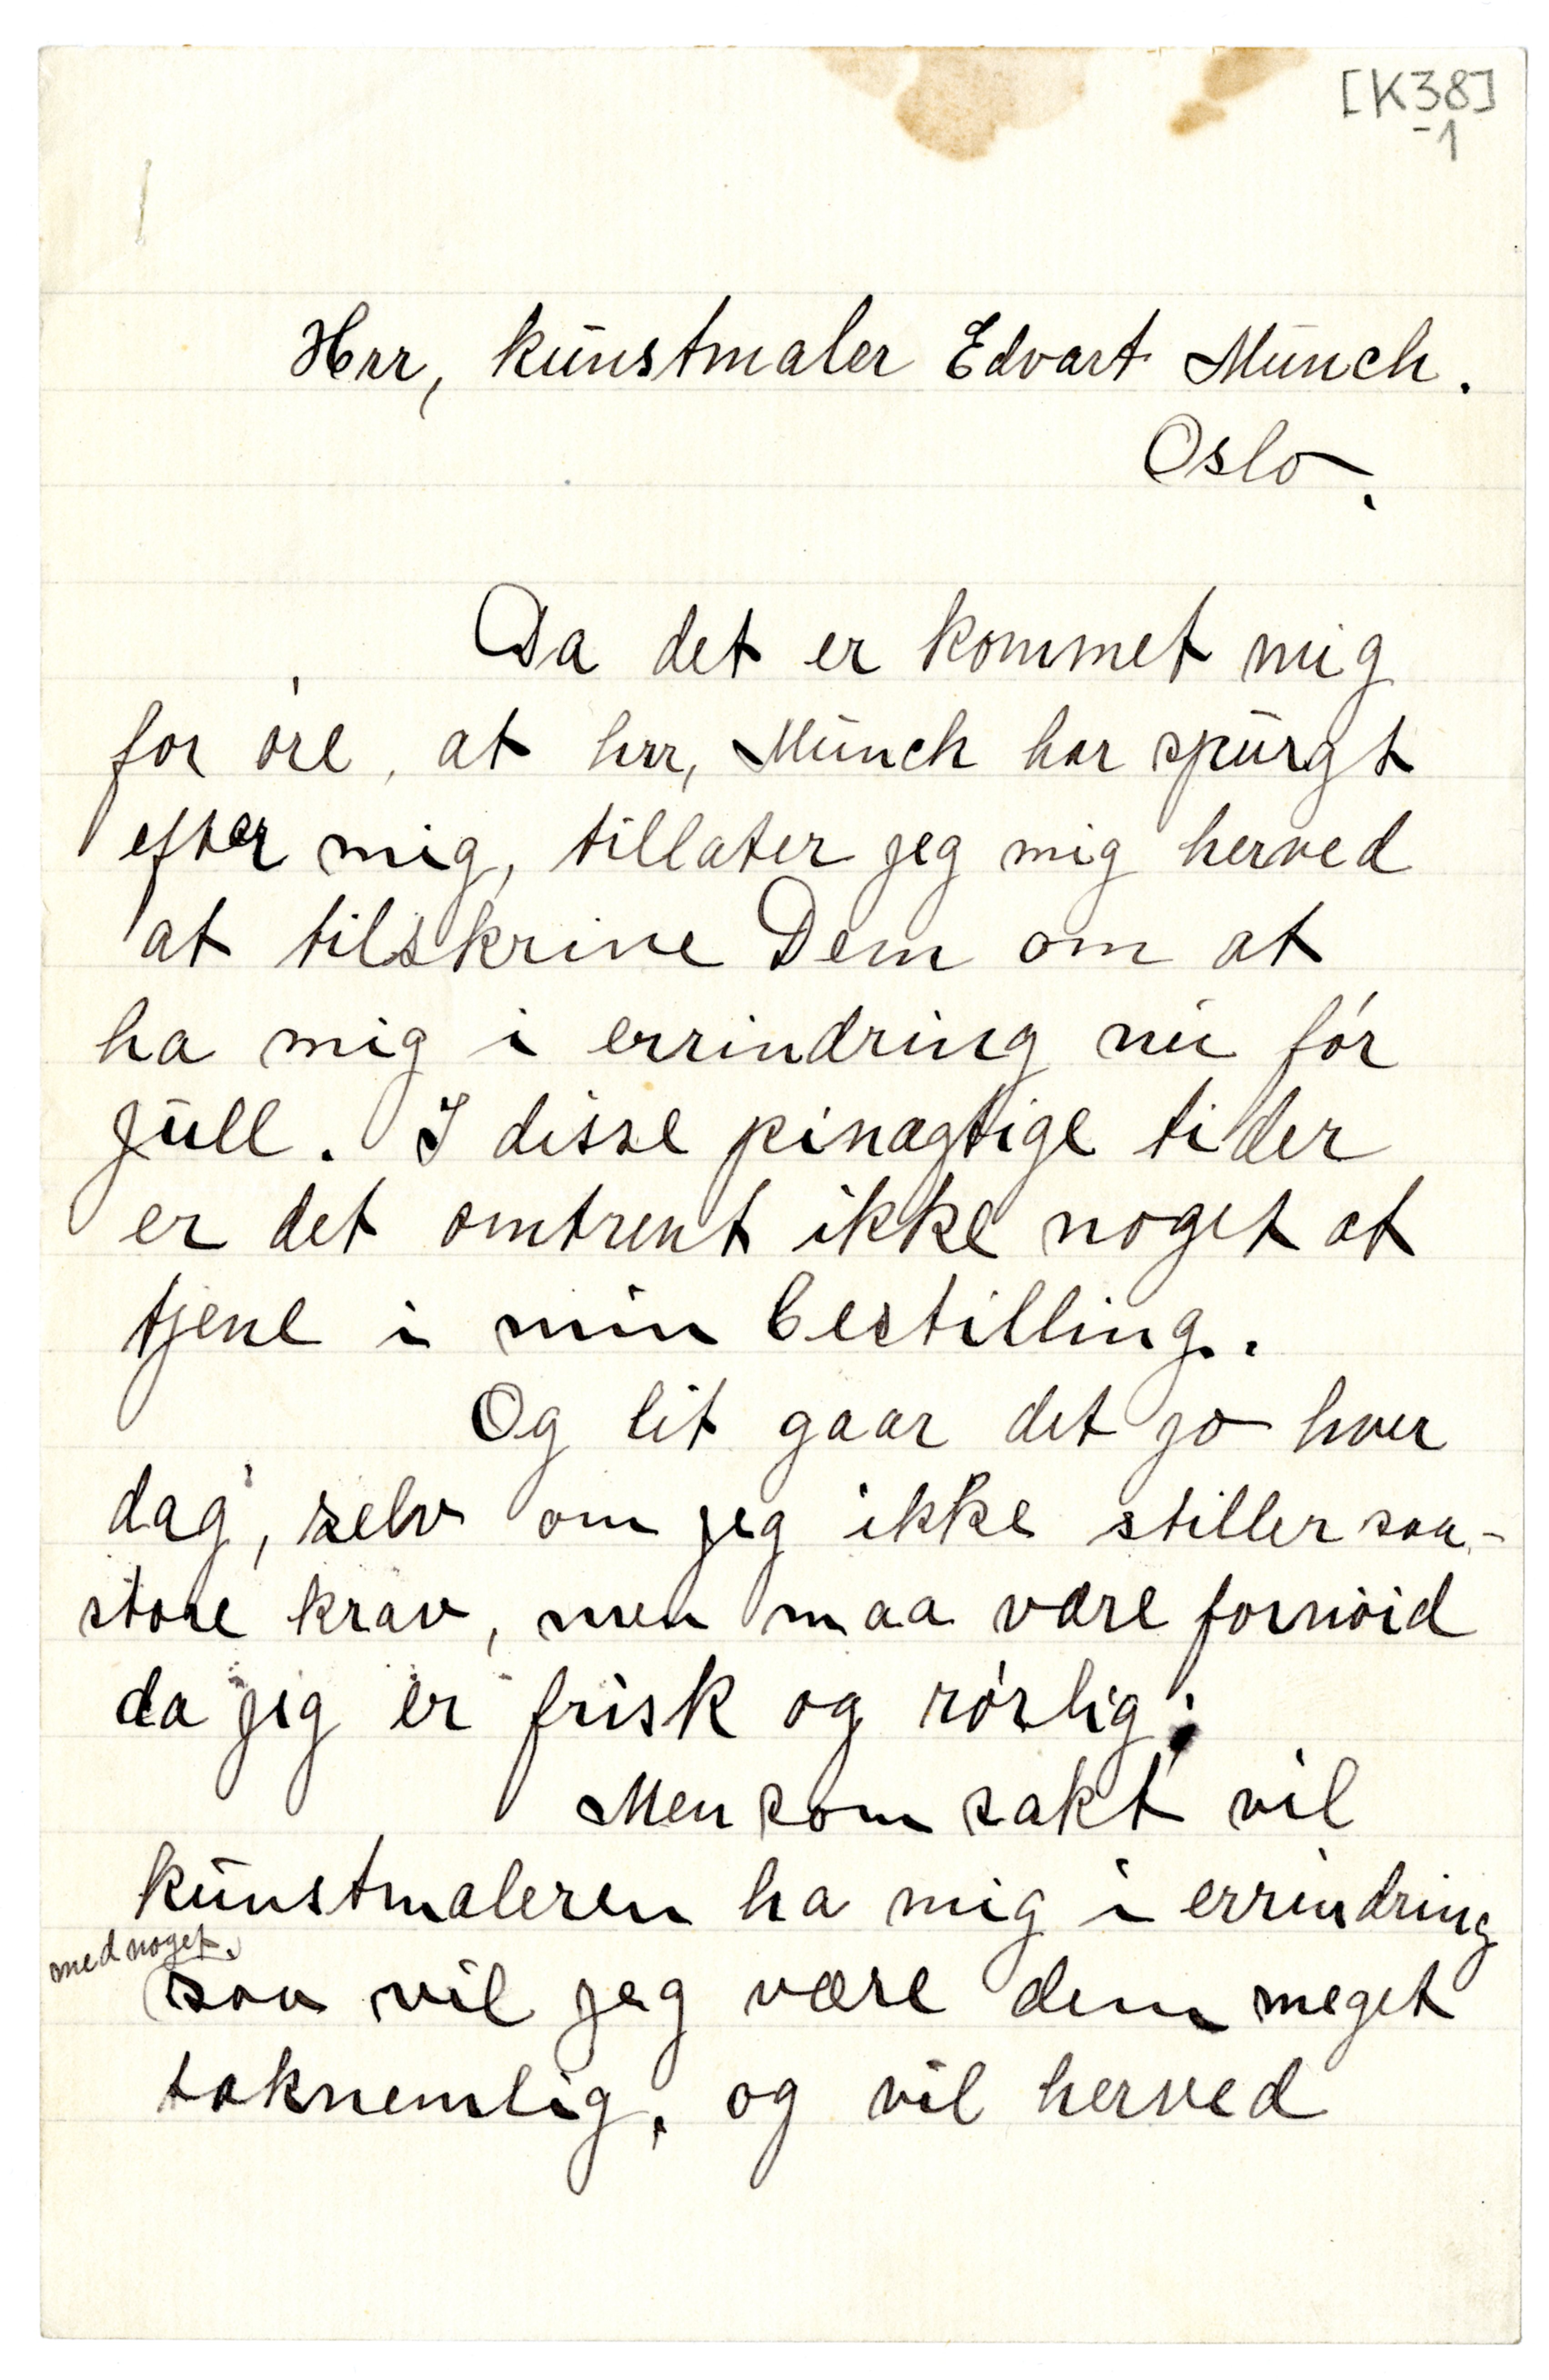 [K38]
-1
Hrr, kunstmaler Edvart Munch.
Oslo.
Da det er kommet mig
for öre, at hrr, Munch har spurgt
efter mig, tillater jeg mig herved
at tilskrive Dem om at
ha mig i errindring nu för
Jull. I disse pinagtige tider
er det omtrent ikke noget at
tjene i min bestilling.
Og lit gaar det jo hver
dag, selv om jeg ikke stiller saa
store krav, men maa være fornöid
da jeg er frisk og rörlig.
Men som sakt vil
kunstmaleren ha mig i errindring
med noget.
saa vil jeg være dem meget
taknemlig, og vil herved